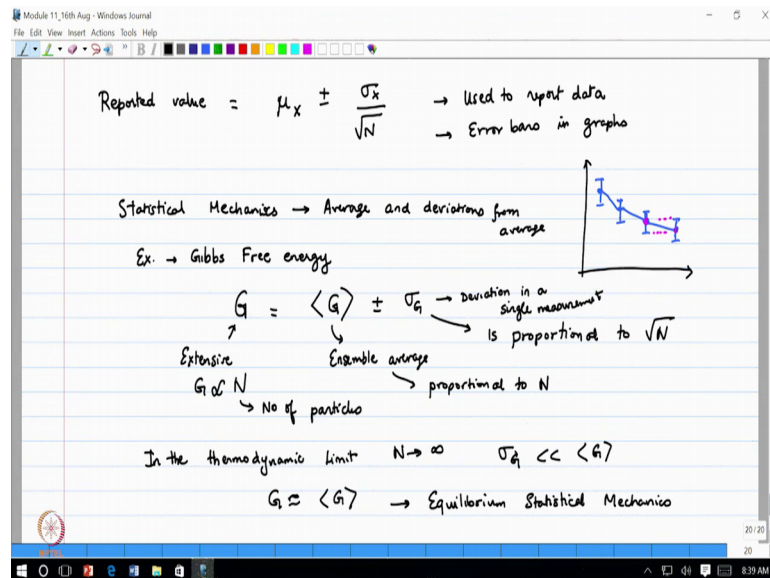 Module 11_16th Aug - Windows Journal
File Edit View Insert Actions Tools Help
Reported value = μx ± σx/√N → Used to report data
→ Error bars in graphs
Statistical Mechanics → Average and deviations from average
Ex. → Gibbs Free energy
G = ⟨G⟩ ± σG → Deviation in a single measurement
Is proportional to √N
Extensive
Ensemble average
G ∝ N
proportional to N
No of particles
In the thermodynamic limit N → ∞ σG << ⟨G⟩
G ≈ ⟨G⟩ → Equilibrium Statistical Mechanics
20/20
20
NPTEL
8:39 AM